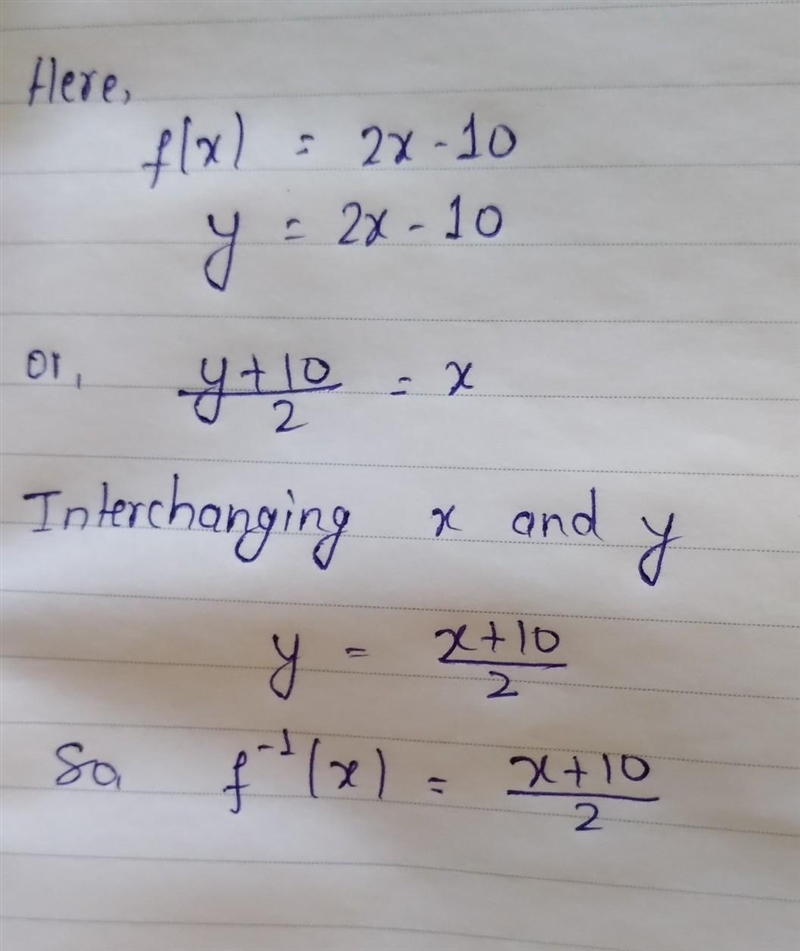 Here,
f(x) = 2x - 10
y = 2x - 10
or, (y+10)/2 = x
Interchanging x and y
y = (x+10)/2
So, f⁻¹(x) = (x+10)/2